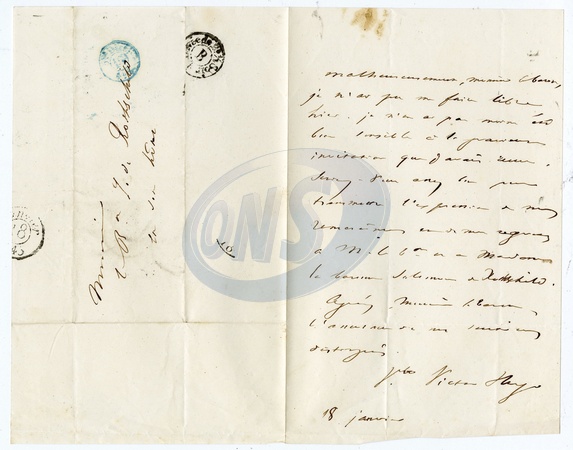 Monsieur
le Bon J. de Rothschild
en son hôtel
malheureusement, monsieur le baron,
je n'ai pu me faire libre
hier. je n'en ai pas moins été
bien sensible à la gracieuse
invitation que j'avais reçue.
Soyez assez bon pour
transmettre l'expression de mes
remerciements et de mes regrets
à M. le bon et à Madame
la baronne Salomon de Rothschild.
Agréez Monsieur le baron,
l'assurance de mes sentiments
distingués.
Vte Victor Hugo
18 janvier
ONS